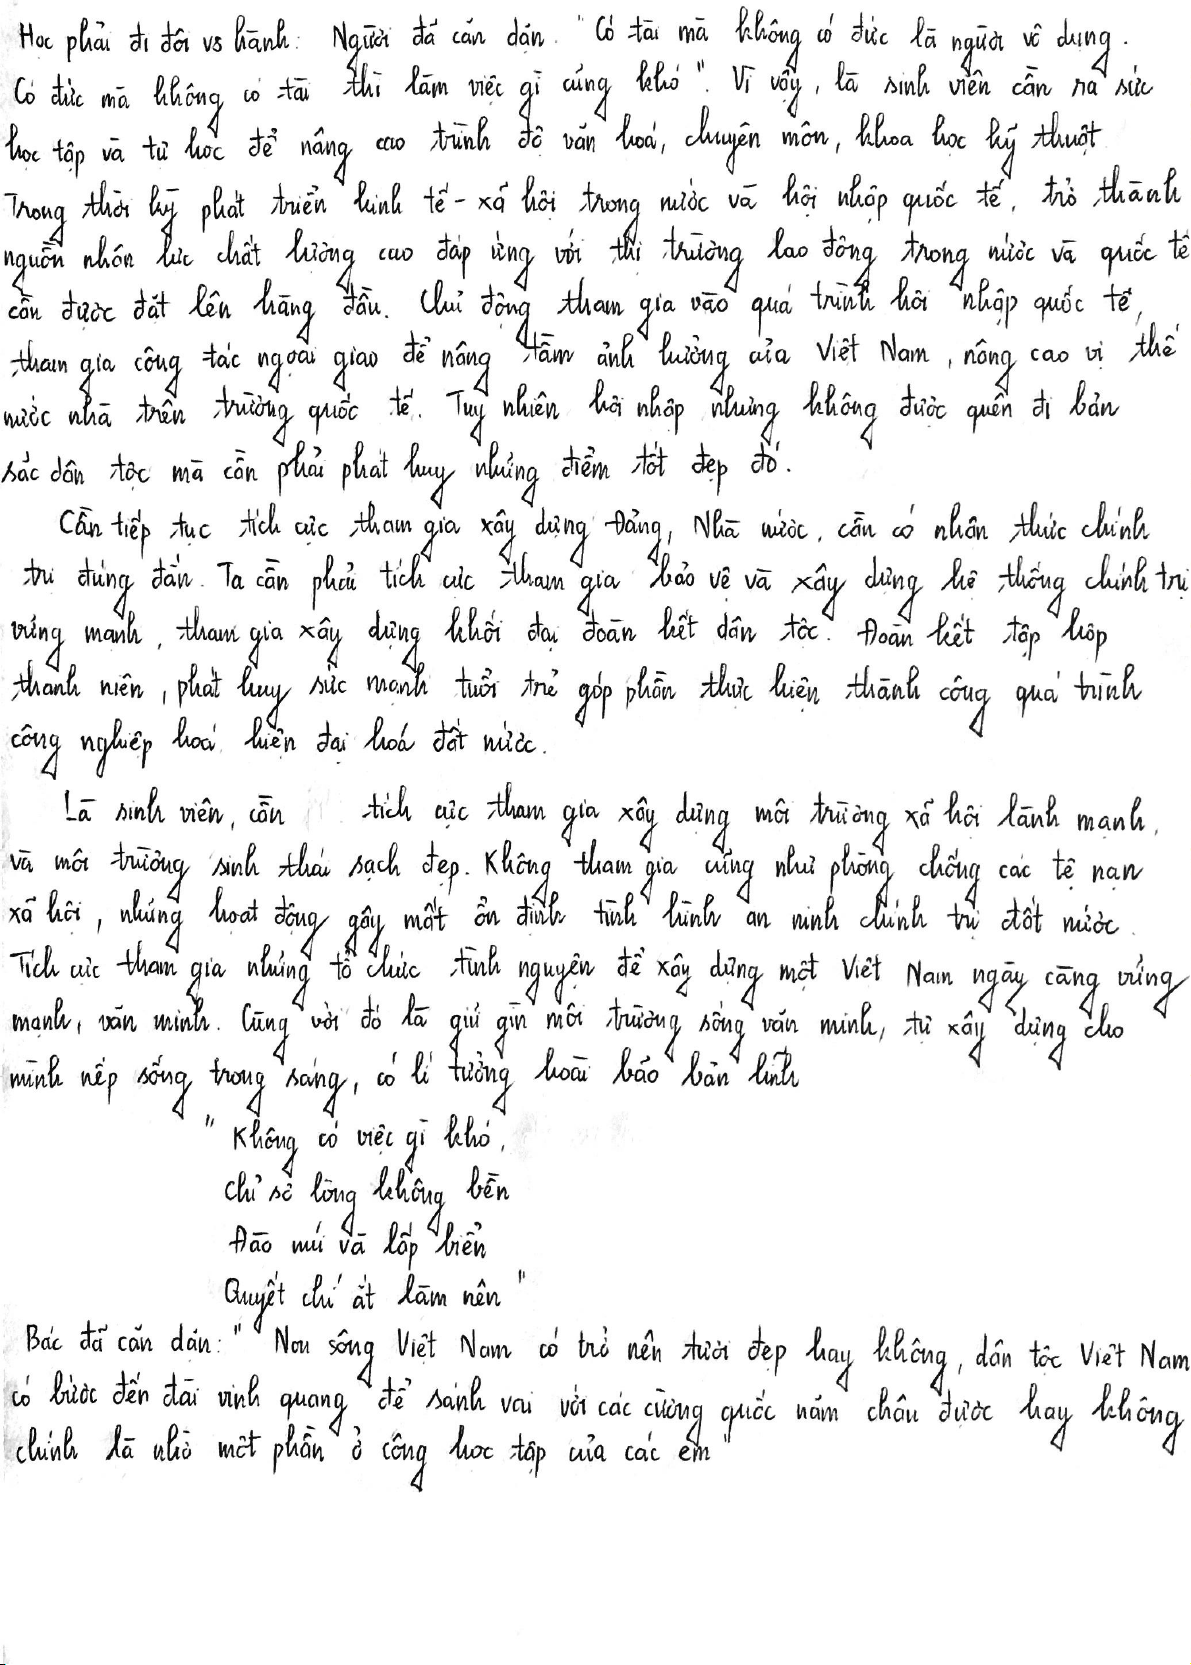 Học phải đi đôi vs hành: Người đã căn dặn. "Có tài mà không có đức là người vô dụng.
Có đức mà không có tài thì làm việc gì cũng khó". Vì vậy, là sinh viên cần ra sức
học tập và tự học để nâng cao trình độ văn hoá, chuyên môn, khoa học kỹ thuật
Trong thời kỳ phát triển kinh tế - xã hội trong nước và hội nhập quốc tế, trở thành
nguồn nhân lực chất lượng cao đáp ứng với thị trường lao động trong nước và quốc tế
cần được đặt lên hàng đầu. Chủ động tham gia vào quá trình hội nhập quốc tế,
tham gia công tác ngoại giao để nâng tầm ảnh hưởng của Việt Nam, nâng cao vị thế
nước nhà trên trường quốc tế. Tuy nhiên hội nhập nhưng không được quên đi bản
sắc dân tộc mà cần phải phát huy những điểm tốt đẹp đó.
Cần tiếp tục tích cực tham gia xây dựng Đảng, Nhà nước, cần có nhận thức chính
trị đúng đắn. Ta cần phải tích cực tham gia bảo vệ và xây dựng hệ thống chính trị
vững mạnh, tham gia xây dựng khối đại đoàn kết dân tộc. Đoàn kết tập hợp
thanh niên, phát huy sức mạnh tuổi trẻ góp phần thực hiện thành công quá trình
công nghiệp hoá hiện đại hoá đất nước.
Là sinh viên, cần tích cực tham gia xây dựng môi trường xã hội lành mạnh,
và môi trường sinh thái sạch đẹp. Không tham gia cũng như phòng chống các tệ nạn
xã hội, những hoạt động gây mất ổn định tình hình an ninh chính trị đất nước.
Tích cực tham gia những tổ chức tình nguyện để xây dựng một Việt Nam ngày càng vững
mạnh, văn minh. Cùng với đó là giữ gìn môi trường sống văn minh, tự xây dựng cho
mình nếp sống trong sáng, có lí tưởng hoài bão bản lĩnh
"Không có việc gì khó,
Chỉ sợ lòng không bền
Đào núi và lấp biển
Quyết chí ắt làm nên"
Bác đã căn dặn: "Non sông Việt Nam có trở nên tươi đẹp hay không, dân tộc Việt Nam
có bước đến đài vinh quang để sánh vai với các cường quốc năm châu được hay không
chính là nhờ một phần ở công học tập của các em"